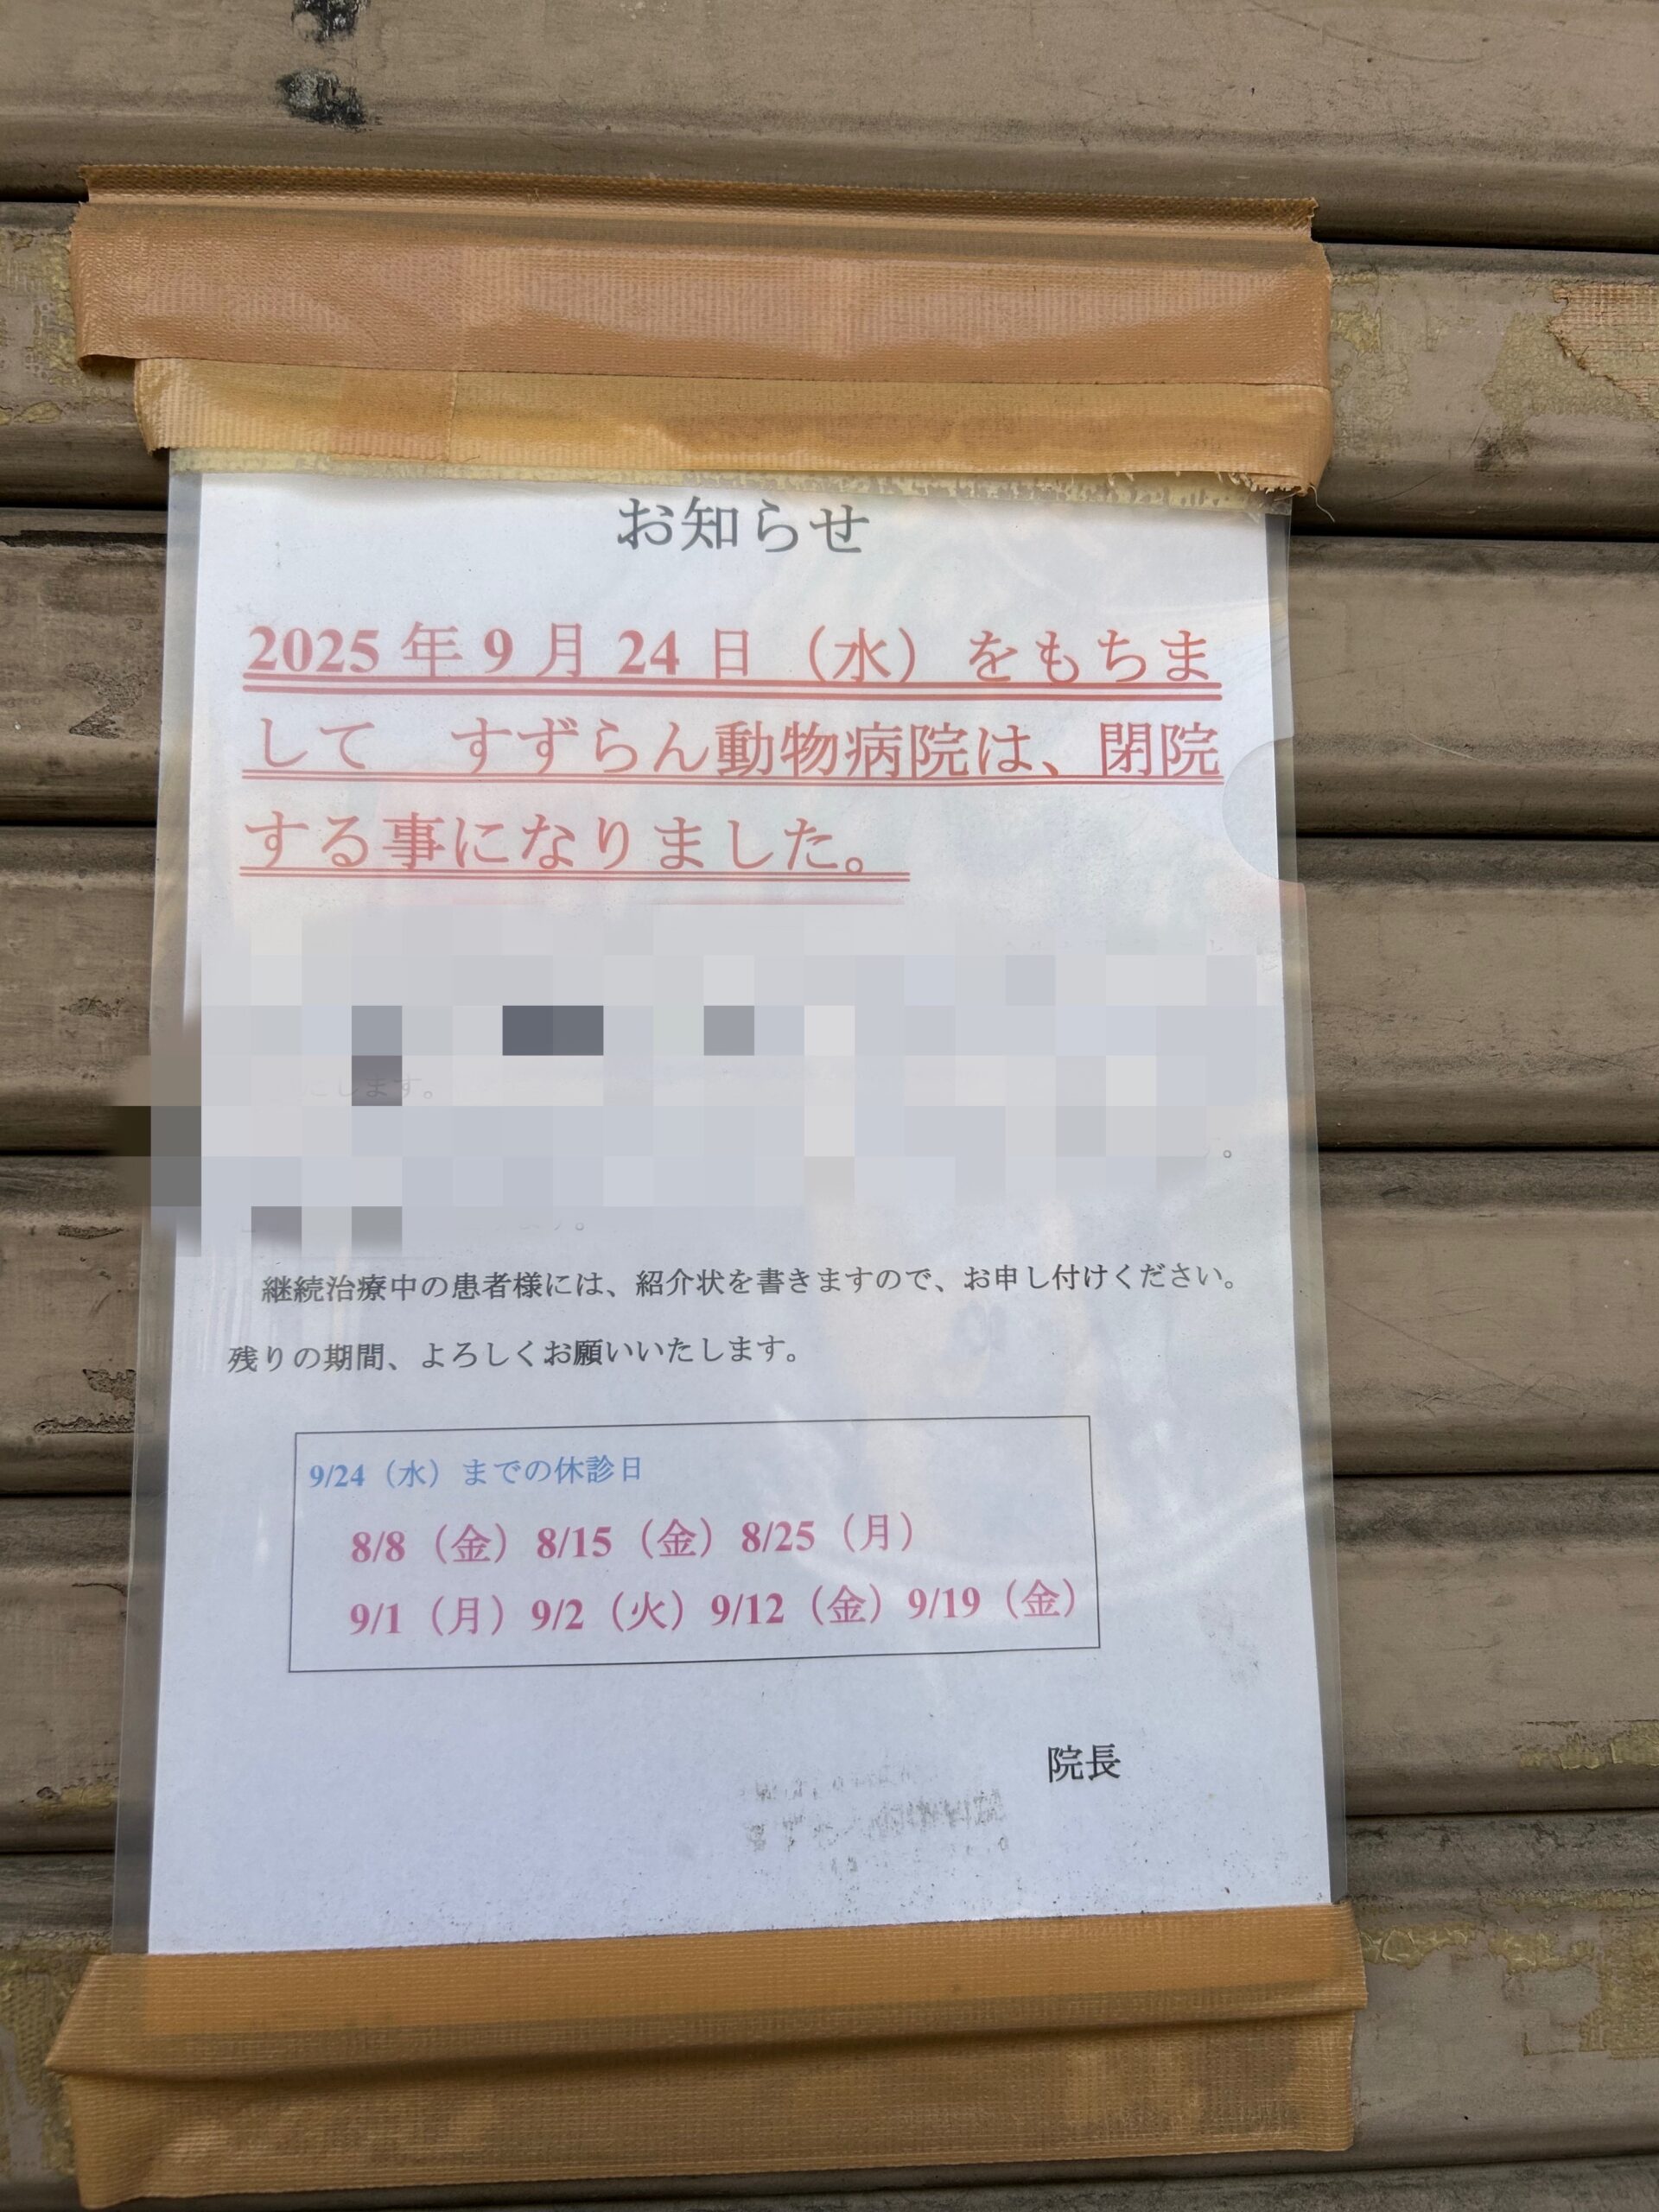 お知らせ
2025年9月24日（水）をもちま
して　すずらん動物病院は、閉院
する事になりました。
します。
継続治療中の患者様には、紹介状を書きますので、お申し付けください。
残りの期間、よろしくお願いいたします。
9/24（水）までの休診日
8/8（金）8/15（金）8/25（月）
9/1（月）9/2（火）9/12（金）9/19（金）
院長